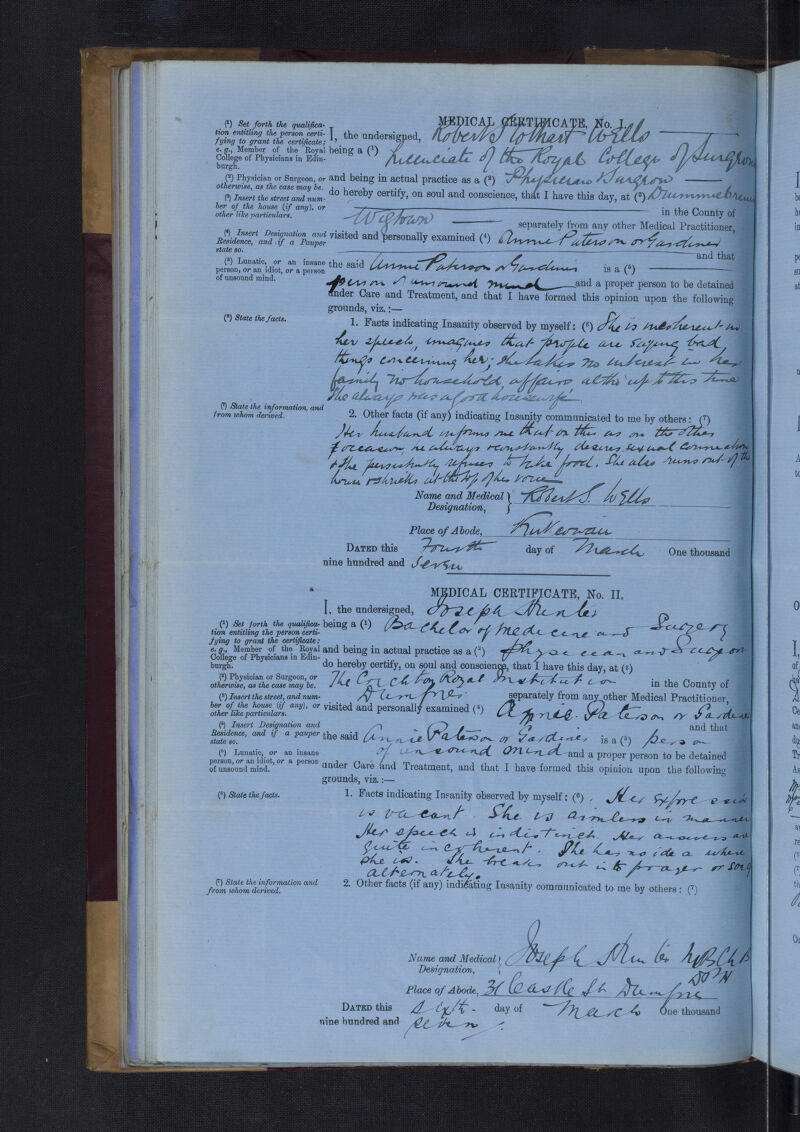 MEDICAL CERTIFICATE, No. I.
(¹) Set forth the qualifica-
tion entitling the person certi-
fying to grant the certificate;
e. g., Member of the Royal
College of Physicians in Edin-
burgh.
I, the undersigned, Robert Wells
being a (¹) Licenciate of the Royal College of Surgeons
(²) Physician or Surgeon, or
otherwise, as the case may be.
and being in actual practice as a (²) Physician & Surgeon
(³) Insert the street and num-
ber of the house (if any), or
other like particulars.
do hereby certify, on soul and conscience, that I have this day, at (³)
Wigtown in the County of
separately from any other Medical Practitioner,
(⁴) Insert Designation and
Residence, and if a Pauper
state so.
visited and personally examined (⁴) Annie Paterson or Gardiner
and that
(⁵) Lunatic, or an insane
person, or an idiot, or a person
of unsound mind.
the said Annie Paterson or Gardiner is a (⁵)
person of unsound mind and a proper person to be detained
under Care and Treatment, and that I have formed this opinion upon the following
grounds, viz. :—
(⁶) State the facts.
1. Facts indicating Insanity observed by myself: (⁶) She is incoherent in
her speech, imagines that people are saying bad
things concerning her; she takes no interest in her
family nor household affairs, altho' up to this time
She always was a good housewife
(⁷) State the information, and
from whom derived.
2. Other facts (if any) indicating Insanity communicated to me by others: (⁷)
Her husband informs me that on this as on the other
occasion, he always constantly desires sexual connection
& she persistently refuses to take food. She also runs out of the
house & shrieks at the top of her voice
Name and Medical Designation, Robert S. Wells
Place of Abode, Kirkcowan
DATED this Fourth day of March One thousand
nine hundred and Seven
MEDICAL CERTIFICATE, No. II.
I, the undersigned, Joseph Hunter
(¹) Set forth the qualifica-
tion entitling the person certi-
fying to grant the certificate;
e. g., Member of the Royal
College of Physicians in Edin-
burgh.
being a (¹) Bachelor of Medicine and Surgery
and being in actual practice as a (²) Physician and Surgeon
do hereby certify, on soul and conscience, that I have this day, at (³)
(²) Physician or Surgeon, or
otherwise, as the case may be.
The Crichton Royal Institution in the County of
(³) Insert the street, and num-
ber of the house (if any), or
other like particulars.
Dumfries separately from any other Medical Practitioner,
visited and personally examined (⁴) Annie Paterson or Gardiner
(⁴) Insert Designation and
Residence, and if a pauper
state so.
and that
the said Annie Paterson or Gardiner is a (⁵) person
(⁵) Lunatic, or an insane
person, or an idiot, or a person
of unsound mind.
of unsound mind and a proper person to be detained
under Care and Treatment, and that I have formed this opinion upon the following
grounds, viz. :—
(⁶) State the facts.
1. Facts indicating Insanity observed by myself: (⁶). Her expression
is vacant. She is aimless in manner
Her speech is indistinct. Her answers are
quite incoherent. She has no idea where
she is. She breaks out into prayer or song
alternately.
(⁷) State the information and
from whom derived.
2. Other facts (if any) indicating Insanity communicated to me by others: (⁷)
Name and Medical Designation, Joseph Hunter MB Ch B
DPH
Place of Abode, 31 Castle St Dumfries
DATED this sixth day of March One thousand
nine hundred and seven.